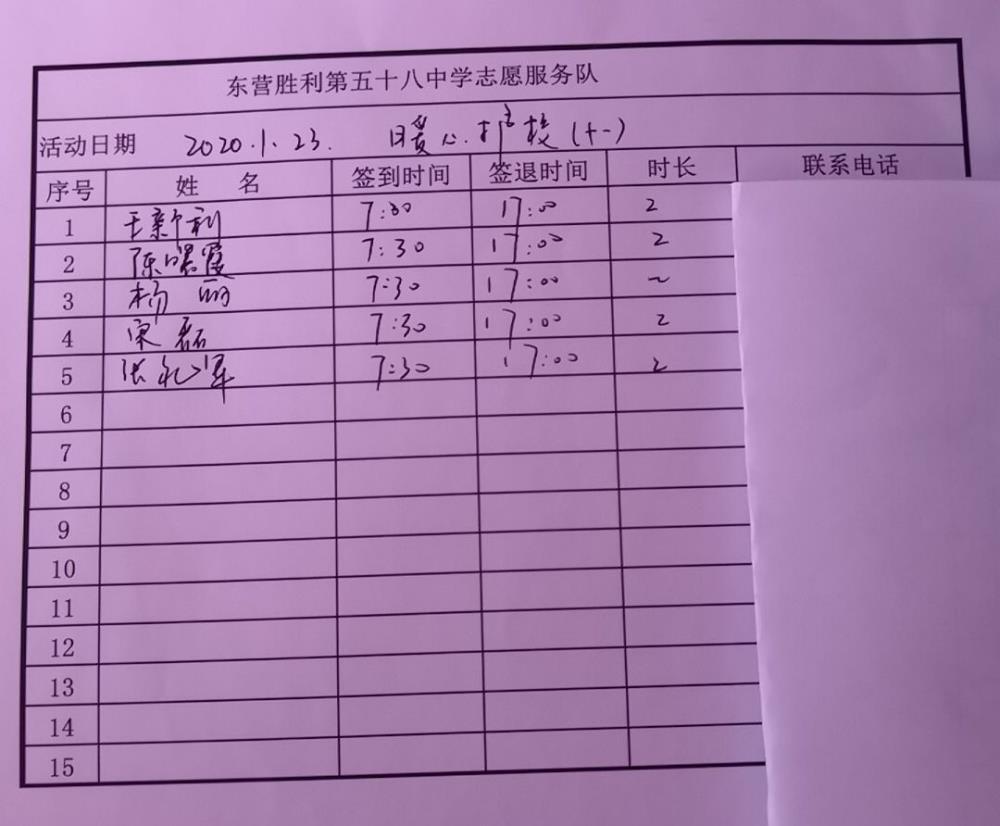 东营胜利第五十八中学志愿服务队
活动日期 2020.1.23. 暖心护校(十一)
序号 姓名 签到时间 签退时间 时长 联系电话
1 王新利 7:30 17:00 2
2 陈曙霞 7:30 17:00 2
3 杨丽 7:30 17:00 2
4 宋磊 7:30 17:00 2
5 张礼军 7:30 17:00 2
6
7
8
9
10
11
12
13
14
15